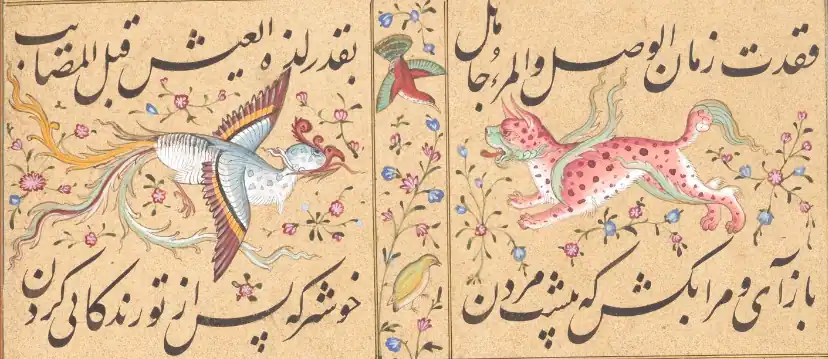 فقدت زمان الوصل والمرء جاهل
بقدر لذه العیش قبل المصایب
باز آی و مرا بکش که پیشت مردن
خوشتر که پس از تو زندگانی کردن